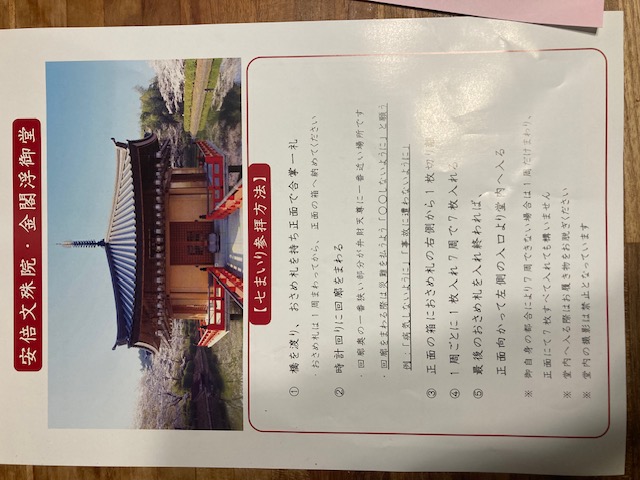 安倍文殊院・金閣浮御堂
【七まいり参拝方法】
① 橋を渡り、おさめ札を持ち正面で合掌一礼
・おさめ札は1周まわってから、正面の箱へ納めてください
② 時計回りに回廊をまわる
・回廊奥の一番狭い部分が弁財天尊に一番近い場所です
・回廊をまわる際は災難を払うよう「〇〇しないように」と願う
例:「病気しないように」「事故に遭わないように」
③ 正面の箱におさめ札の右側から1枚切り
④ 1周ごとに1枚入れ7周で7枚入れる
⑤ 最後のおさめ札を入れ終われば、
正面向かって左側の入口より堂内へ入る
※ 御自身の都合により7周できない場合は1周だけまわり、
正面にて7枚すべて入れても構いません
※ 堂内へ入る際はお履き物をお脱ぎください
※ 堂内の撮影は禁止となっています